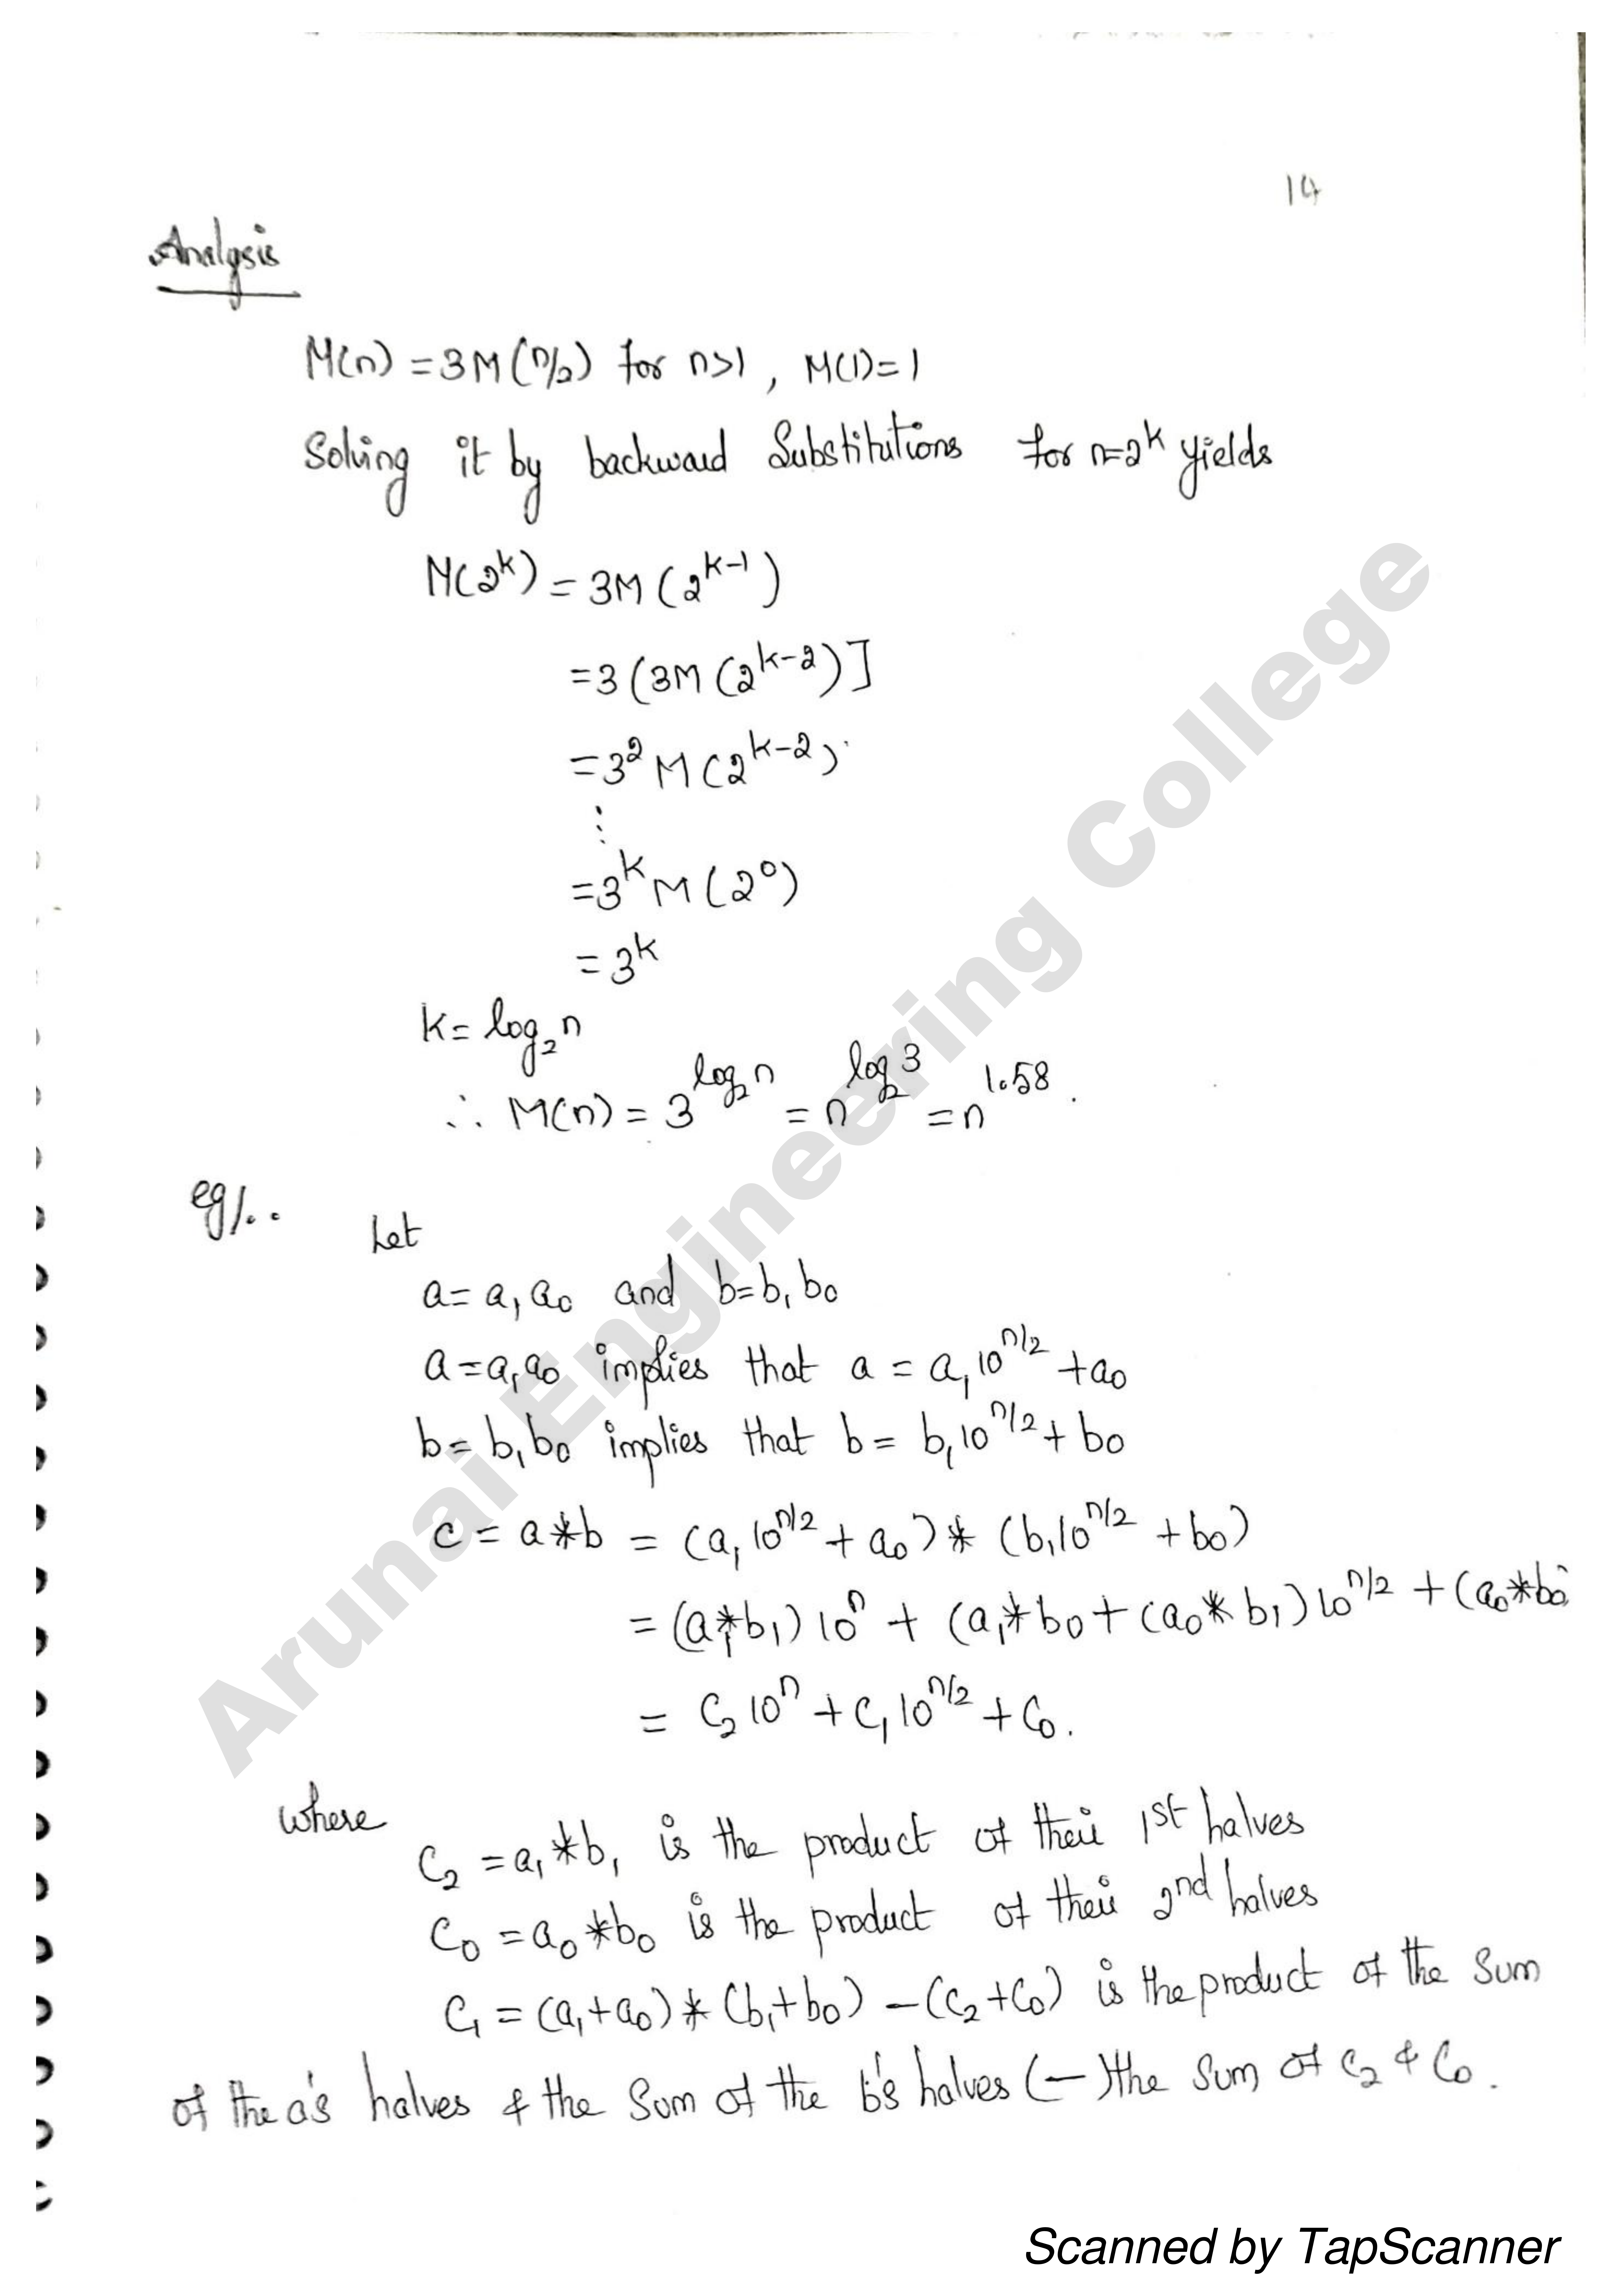 14
Analysis
M(n) = 3M(n/2) for n>1, M(1)=1
Solving it by backward Substitutions for n=2^k yields
M(2^k) = 3M(2^k-1)
=3(3M(2^k-2)]
=3^2 M(2^k-2)
⋮
=3^k M(2^0)
= 3^k
k= log_2 n
∴ M(n) = 3^log_2 n = n^log_2 3 = n^1.58.
eg/..
Let
a= a_1 a_0 and b=b_1 b_0
a=a_1 a_0 implies that a = a_1 10^n/2 + a_0
b= b_1 b_0 implies that b= b_1 10^n/2 + b_0
c = a*b = (a_1 10^n/2 + a_0) * (b_1 10^n/2 + b_0)
= (a_1*b_1) 10^n + (a_1*b_0 + (a_0*b_1) 10^n/2 + (a_0*b_0
= C_2 10^n + C_1 10^n/2 + C_0.
where
C_2 = a_1*b_1 is the product of their 1st halves
C_0 = a_0*b_0 is the product of their 2nd halves
C_1 = (a_1+a_0) * (b_1+b_0) - (C_2+C_0) is the product of the sum
of the a's halves & the Sum of the b's halves (-) the sum of C_2 & C_0.
Arunai Engineering College
Scanned by TapScanner